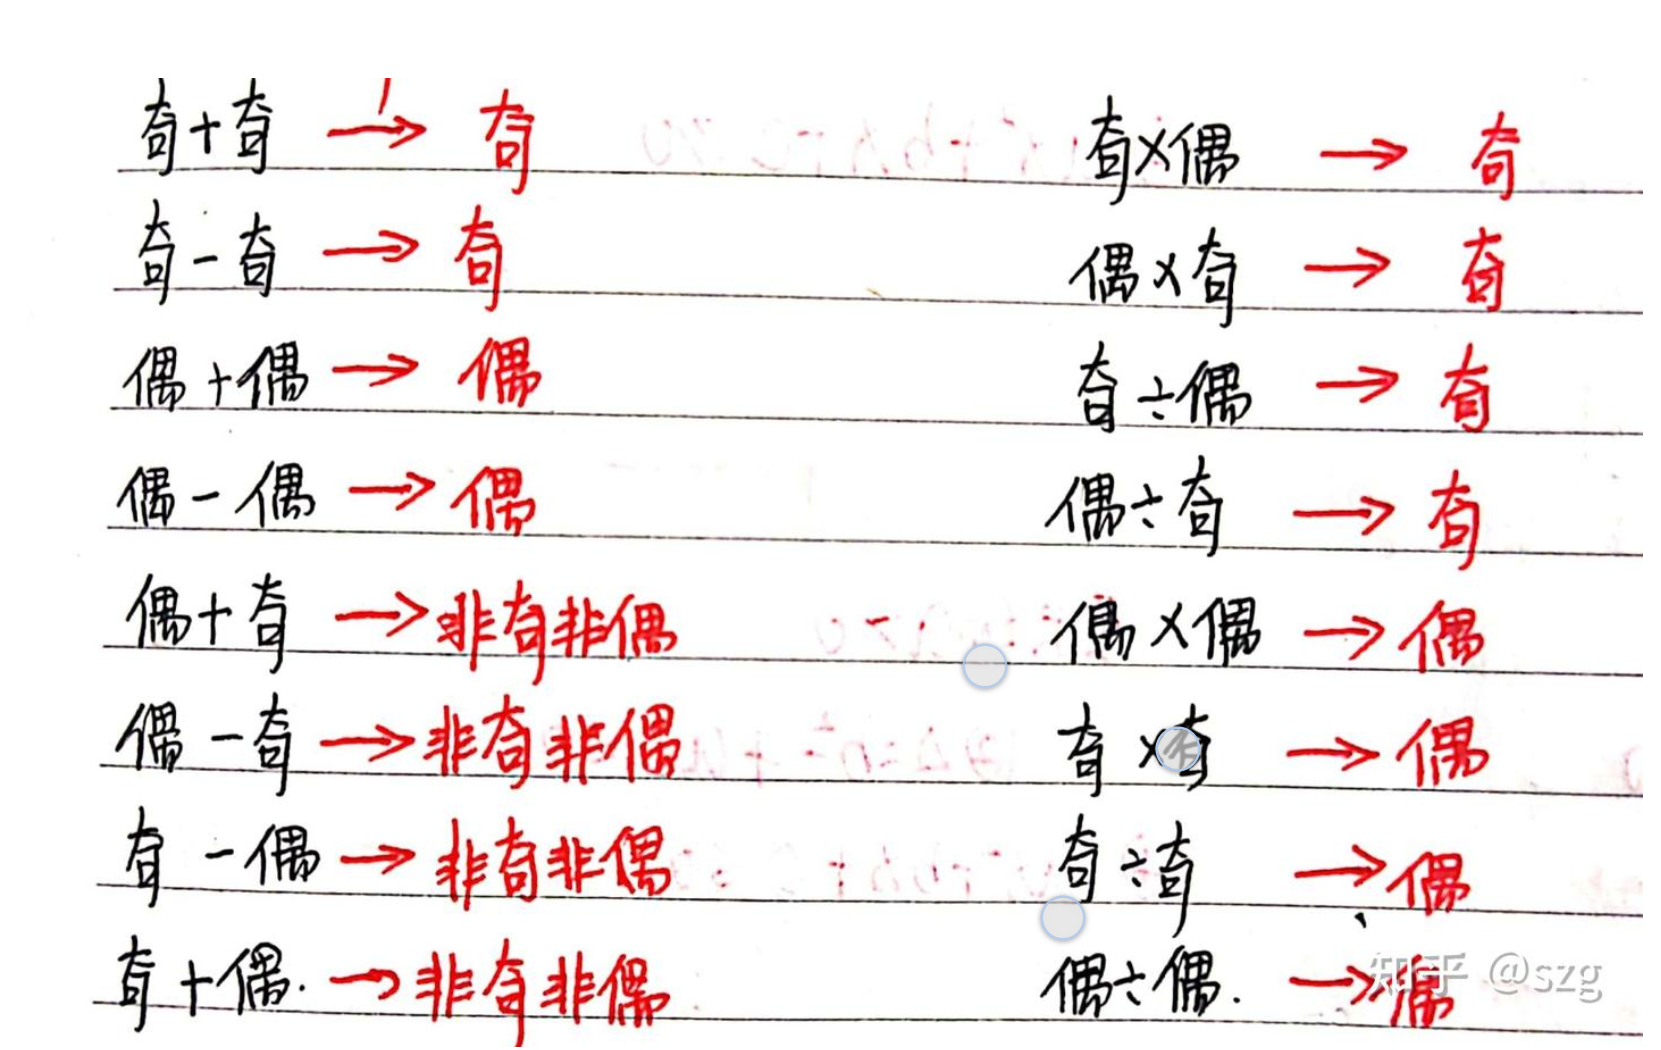 奇+奇 → 奇
奇-奇 → 奇
偶+偶 → 偶
偶-偶 → 偶
偶+奇 → 非奇非偶
偶-奇 → 非奇非偶
奇-偶 → 非奇非偶
奇+偶. → 非奇非偶
奇×偶 → 奇
偶×奇 → 奇
奇÷偶 → 奇
偶÷奇 → 奇
偶×偶 → 偶
奇×奇 → 偶
奇÷奇 → 偶
偶÷偶. → 偶
知乎 @szg